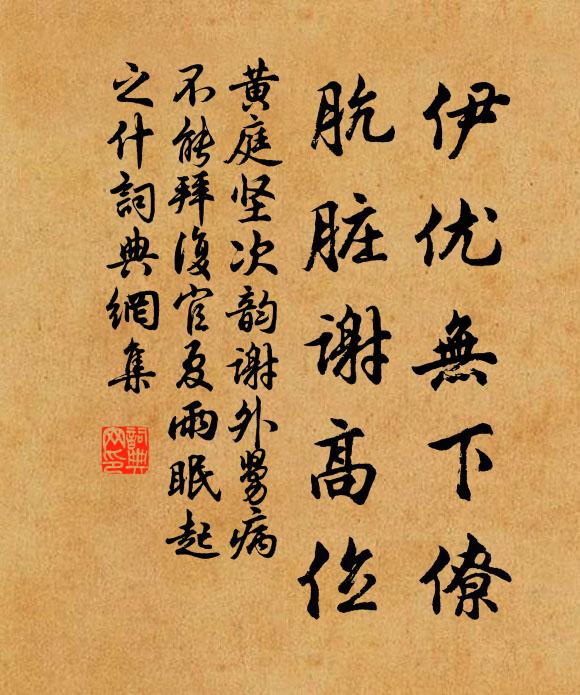 伊优無下僚
肮脏谢高位
黃庭坚次韵谢外舅病
不能拜復官夏雨眠起
之什詞典網集
詞典
网印